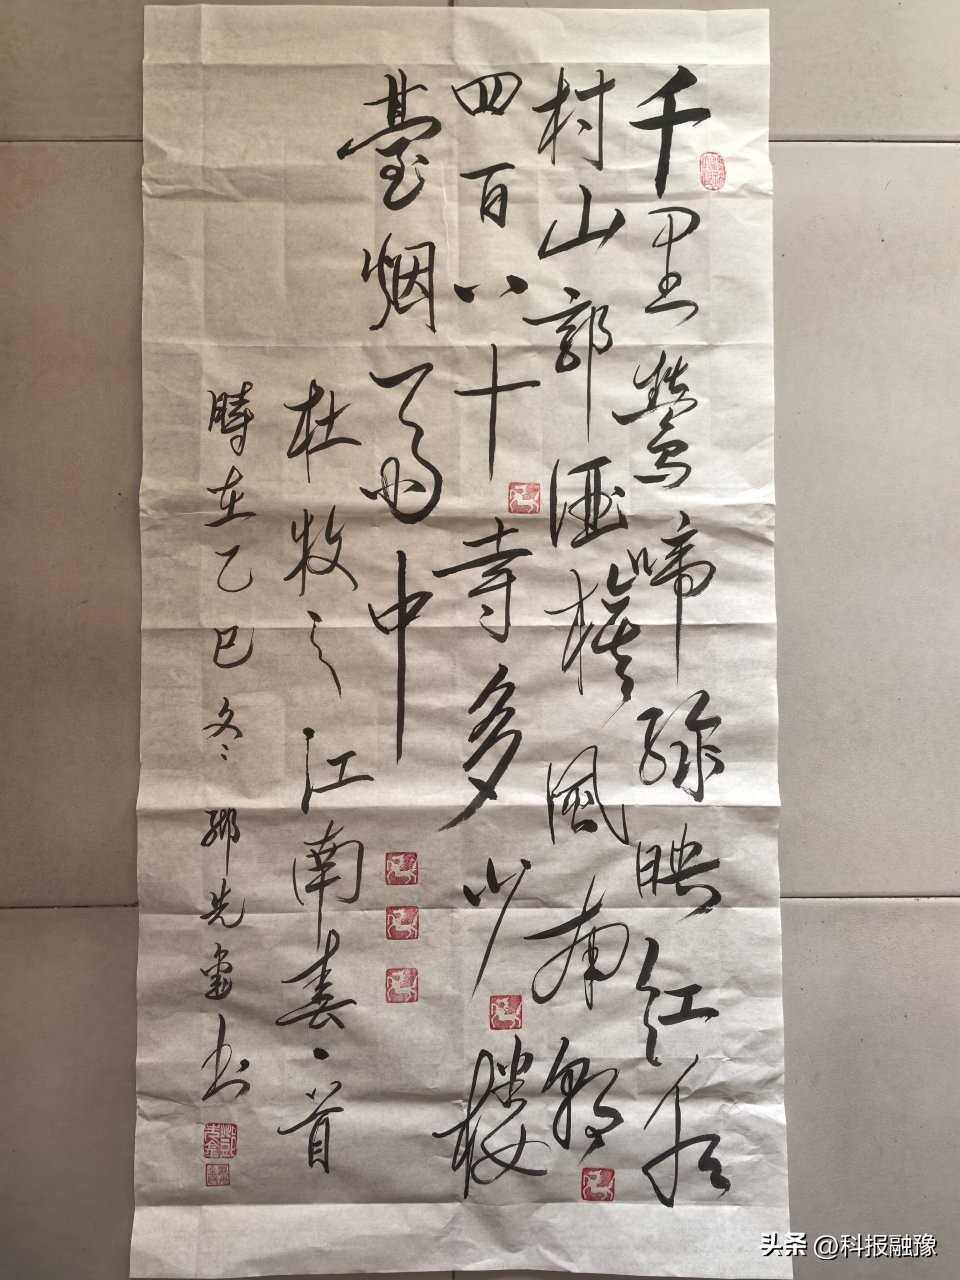 千里鶯啼緑映红水
村山郭酒旗風南朝
四百八十寺多少樓
臺烟雨中
杜牧之江南春一首
時在乙巳冬 先书
头条 @科报融豫